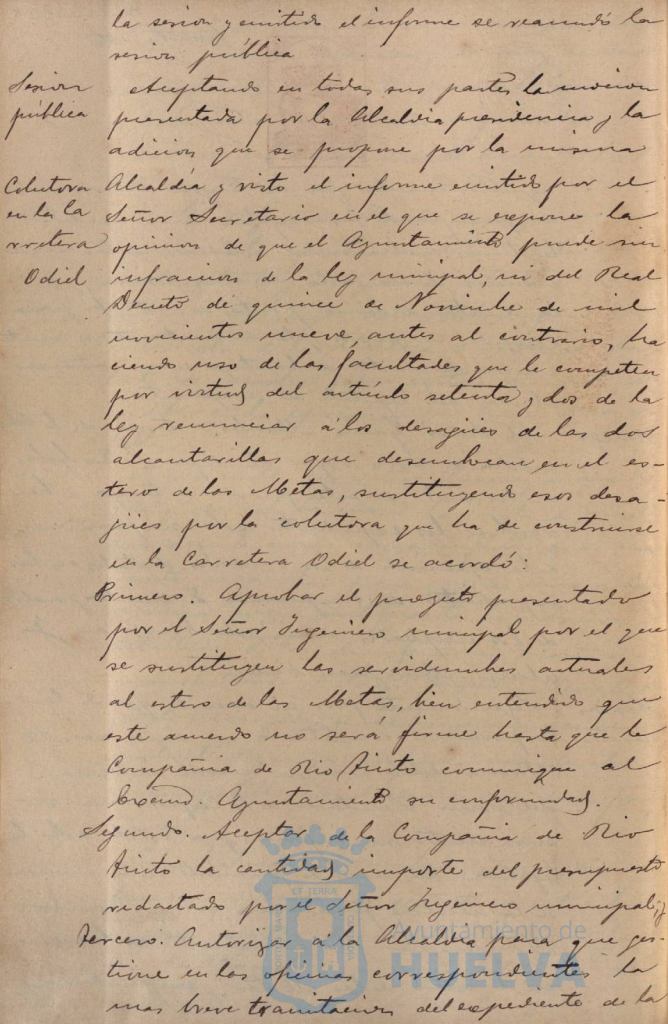 la sesion y emitido el informe se reanudó la
sesion pública
Sesion
pública
Aceptando en todas sus partes la mocion
presentada por la Alcaldia presidencia y la
adicion que se propone por la misma
Colectora
en la Ca
rretera
Odiel
Alcaldía y visto el informe emitido por el
Señor Secretario en el que se expone la
opinion de que el Ayuntamiento puede sin
infraccion de la ley municipal, ni del Real
Decreto de quince de Noviembre de mil
novecientos nueve, antes al contrario, ha
ciendo uso de las facultades que le competen
por virtud del artículo setenta y dos de la
ley renunciar á los desagües de las dos
alcantarillas que desembocan en el es-
tero de las Metas, sustituyendo esos desa-
gües por la colectora que ha de construirse
en la Carretera Odiel se acordó:
Primero. Aprobar el proyecto presentado
por el Señor Ingeniero municipal por el que
se sustituyen las servidumbres actuales
al estero de las Metas, bien entendido que
este acuerdo no será firme hasta que la
Compañia de Rio Tinto comunique al
Excmo. Ayuntamiento su conformidad.
Segundo. Aceptar de la Compañia de Rio
Tinto la cantidad importe del presupuesto
redactado por el Señor Ingeniero municipal; y
Tercero. Autorizar á la Alcaldia para que ges-
tione en las oficinas correspondientes la
mas breve tramitacion del expediente de la
ET TERRA
Ayuntamiento de
HUELVA